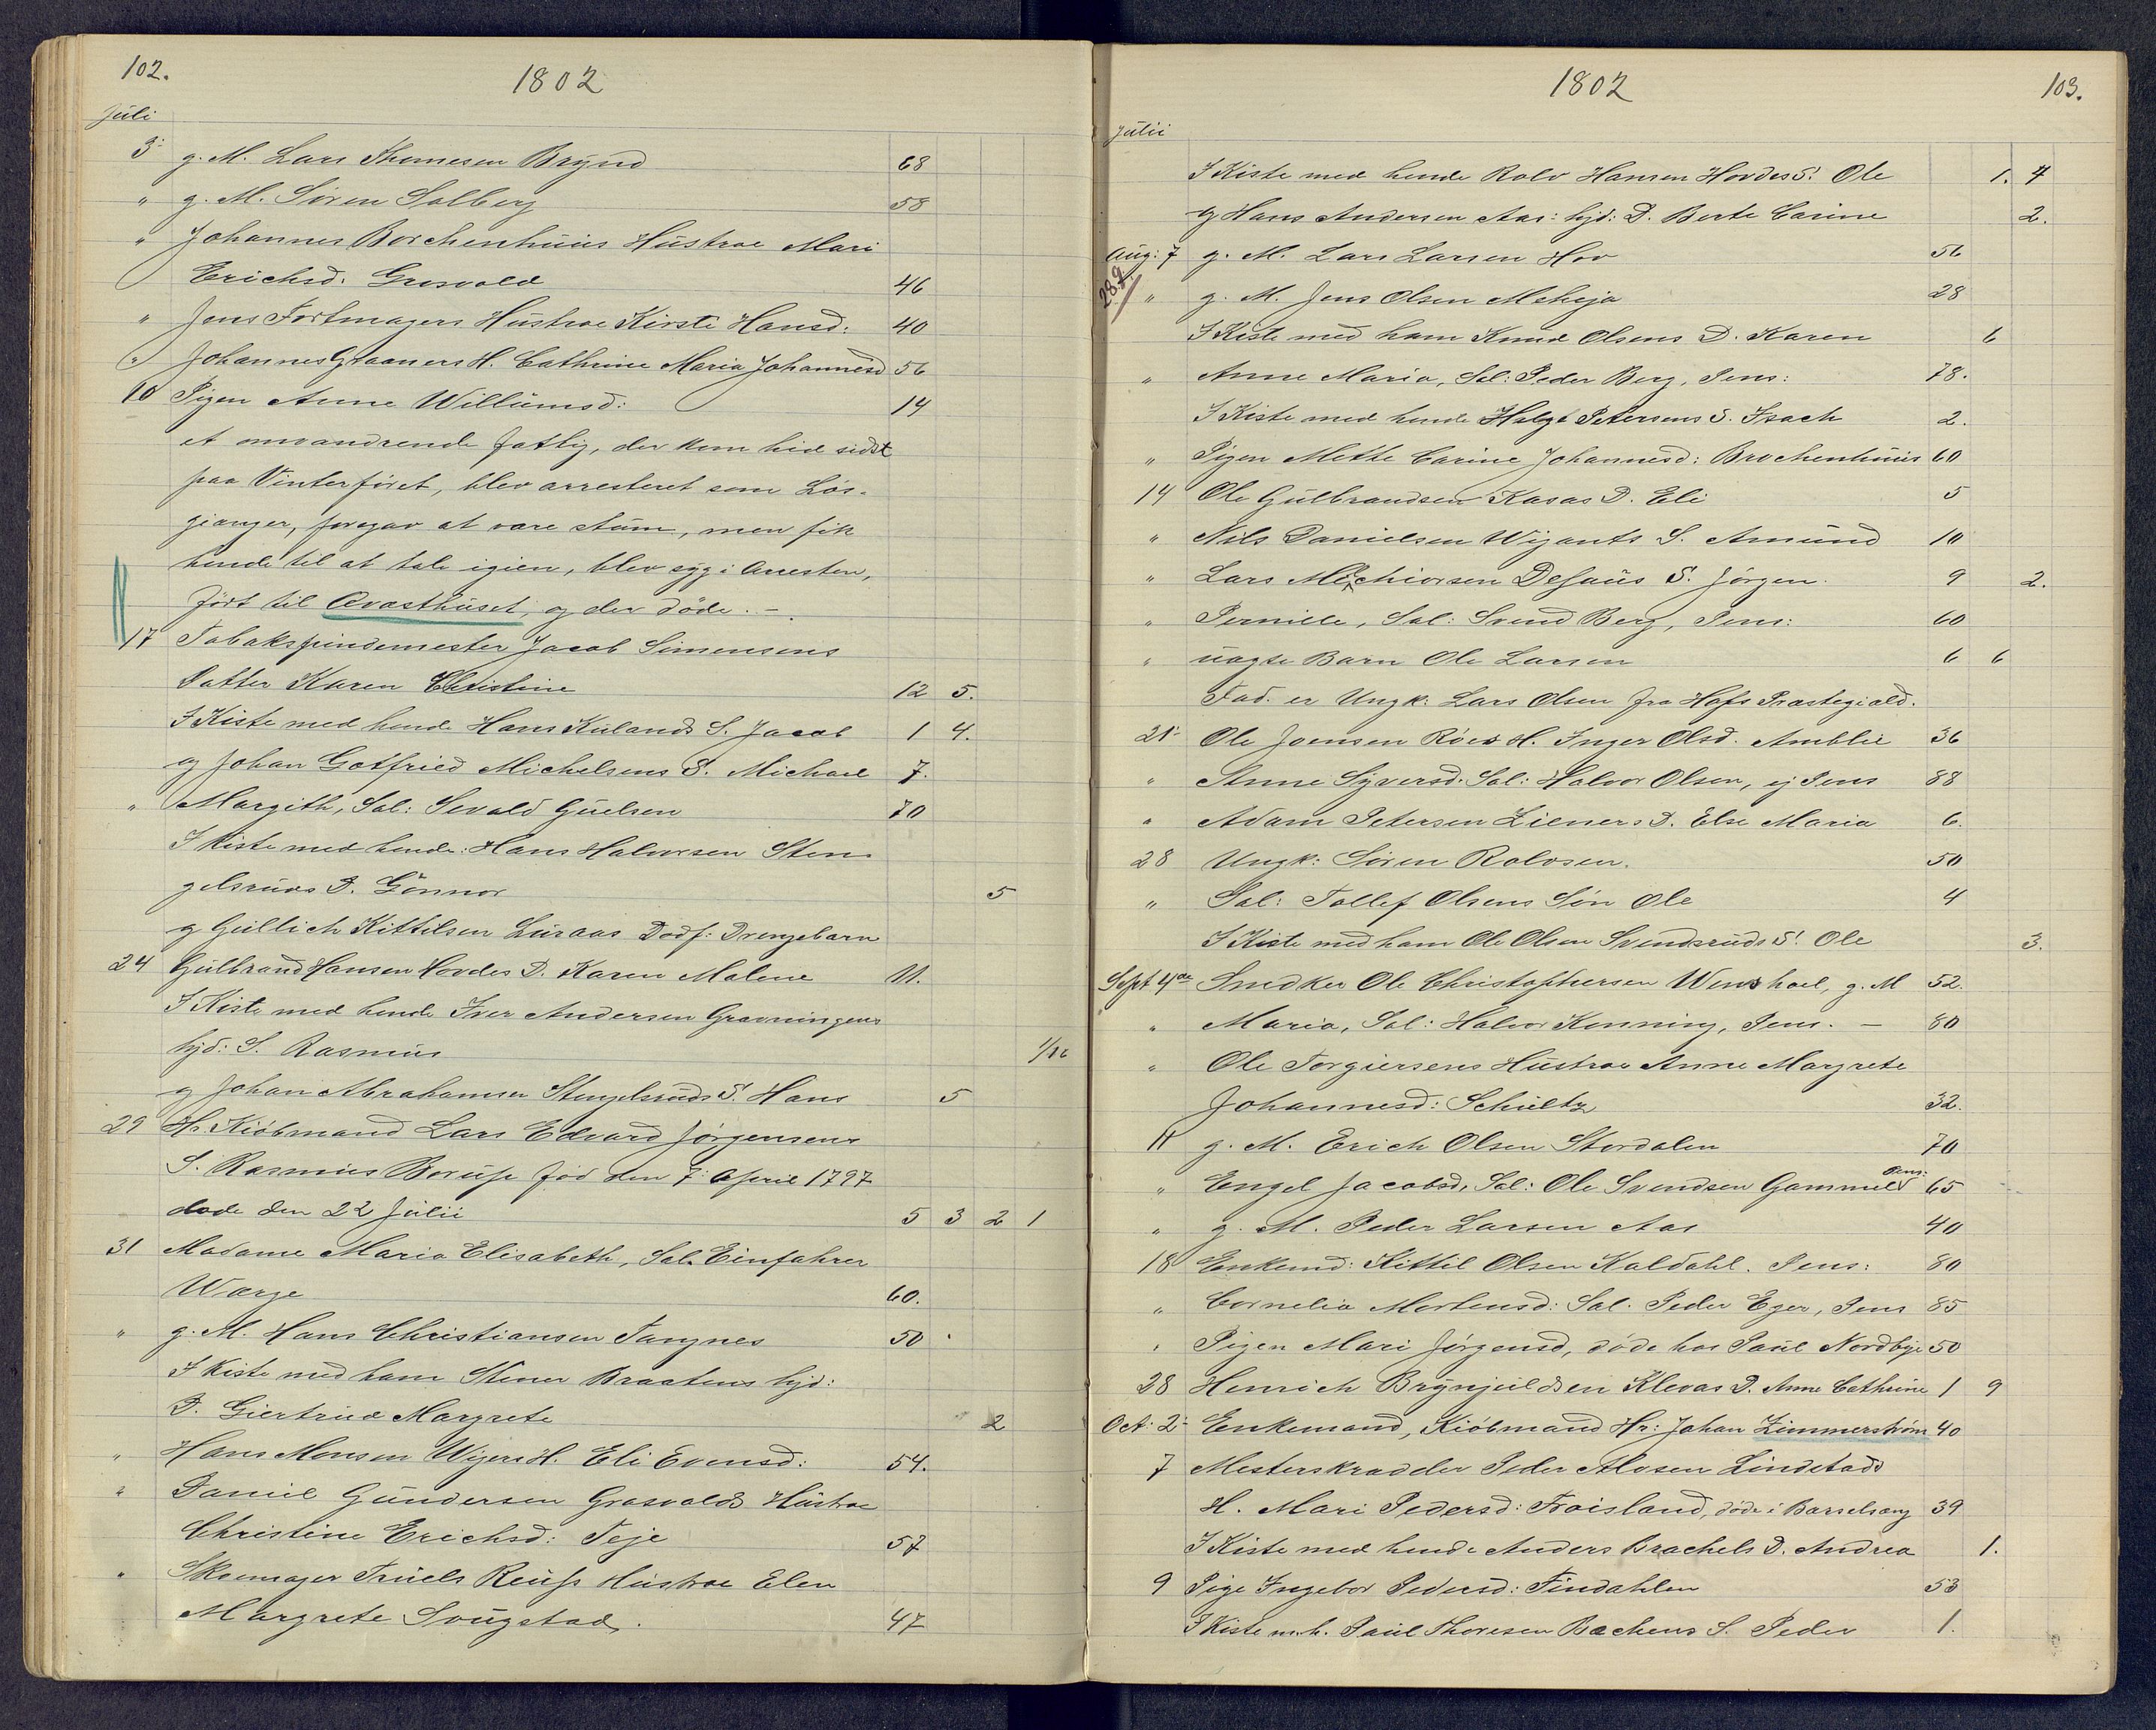 102.
1802
Juli
3. g. M. Lars Thomesen Brynd 68
" g. M. Sören Solberg 58
" Johannes Borchenhuus Hustroe Mari
Erichsd. Grosvold 46
" Jens Fortmagers Hustroe Kirsti Hansd: 40
" Johannes Graaners H. Cathrine Maria Johannesd 56
10 Pigen Anne Willumsd: 14
et omvandrende fattig, der kom hid sidst
paa Vinterföret, blev arresteret som Lös-
gjænger, foregav at være stum, men fik
hende til at tale igien, blev syg i Arresten,
fört til Qvasthuset, og der döde. -
17 Tobakspindemester Jacob Simensens
Datter Karen Christine 12 5.
I Kiste med hende Hans Kulands S. Jacob 1 4.
og Johan Gotfried Michelsens S. Michael 7.
" Margith, Sal: Sevald Guelsen 70
I Kiste med hende: Hans Halvorsen Sten-
gelsruds D. Gönnor 5
og Gullich Kittilsen Luraas Dödf: Drengebarn
24 Gulbrand Hansen Hovdes D. Karen Malene 11.
I Kiste med hende Iver Andersen Gravningens
hjd: S. Rasmus 1/16
og Johan Abrahamsen Stengelsruds S. Hans 5
29 Hr. Kiöbmand Lars Edvard Jörgensens
S. Rasmus Borup föd den 7. April 1797
döde den 22 Julii 5 3 2 1
31 Madame Maria Elisabeth, Sal. Einfahrer
Warge 60.
" g. M. Hans Christiansen Tangnes 50
I Kiste med ham Stener Braatens hjd:
D. Giertrud Margrete 2
" Hans Monsen Wigers H. Eli Evensd: 54.
" Daniel Gundersen Grosvolds Hustroe
Christine Erichsd: Teje 57
" Skomager Truels Reufs Hustroe Elen
Margrete Sougstad. 47
1802
103.
Julii
I Kiste med hende Rolv Hansen Hovdes S. Ole 1. 7
og Hans Andersen Aas: hjd: D. Berte Carine 2.
Aug: 7 g. M. Lars Larsen Hov 56
" g. M. Jens Olsen Meheja 28
I Kiste med ham Knud Olsens D. Karen 6
" Anne Maria, Sal: Peder Berg, Pens: 78.
I Kiste med hende Helge Petersens S. Isach 2.
" Pigen Mette Carine Johannesd: Brochenhuus 60
14 Ole Gulbrandsen Kasas D. Eli 5
" Nils Danielsen Wigants S. Amund 10
" Lars Melchiorsen Desaus S. Jörgen. 9 2.
" Pernille, Sal: Svend Berg, Pens: 60
" uægte Barn Ole Larsen 6 6
Fad. er Ungk: Lars Olsen fra Hofs Præstegiæld.
21. Ole Joensen Röes H. Inger Olsd. Amblie 36
" Anne Syversd. Sal: Halvor Olsen, ej Pens 88
" Adam Petersen Zieners D. Else Maria 6.
28 Ungk: Sören Rolvsen. 50
" Sal: Tollef Olsens Sön Ole 4
I Kiste med ham Ole Olsen Svendsruds S. Ole 3.
Sept 4de Snedker Ole Christophersen Wenshoel, g. M 52.
" Maria, Sal: Halvor Kenning, Pens. - 80
" Ole Torgiersens Hustroe Anne Margrete
Johannesd: Schultz 32.
11 g. M. Erich Olsen Stordalen 70
" Engel Jacobsd, Sal: Ole Svendsen Gammel Pens: 65
" g. M. Peder Larsen Aas 40
18 Enkemd: Kittil Olsen Kaldahl. Pens: 80
" Cornelia Mortensd: Sal. Peder Eger, Pens 85
" Pigen Mari Jörgensd, döde hos Paul Nordbye 50
28 Henrich Brynjuldsen Klevas D. Anne Cathrine 1 9
Oct: 2. Enkemand, Kiöbmand Hr: Johan Zimmerström 40
7 Mesterskrædder Peder Alvsen Lindstads
H. Mari Pedersd: Froisland, döde i Barselseng 39
I Kiste med hende Anders Brachels D. Andrea 1.
9 Pige Ingebor Pedersd: Findahlen 53
I Kiste m. h. Paul Thoresen Bachens S. Peder 1.